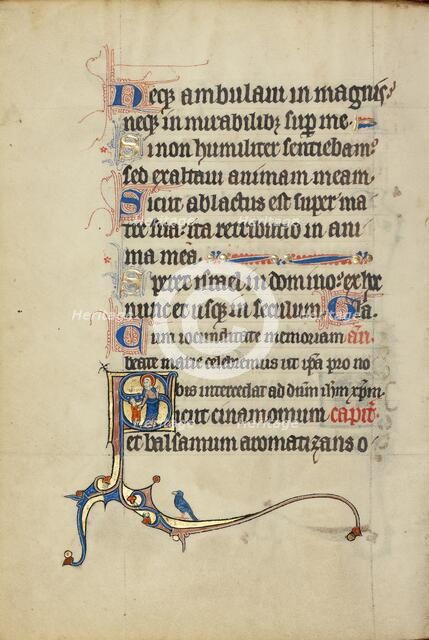 Neq; ambulaui in magnis.
neq; in mirabilib; sup me.
Si non humiliter sentiebam.
sed exaltaui animam meam
Sicut ablactus est super ma
tre sua. ita retributio in ani
ma mea.
Speret israel in domino. ex hc
nunc et usq; in seculum. Gla.
Cum iocunditate memoriam an.
beate marie celebremus ut ipa pro no
bis intercedat ad dnm ihm xpm.
Sicut cinamomum capitm
et balsamum aromatizans o
Heritage Images